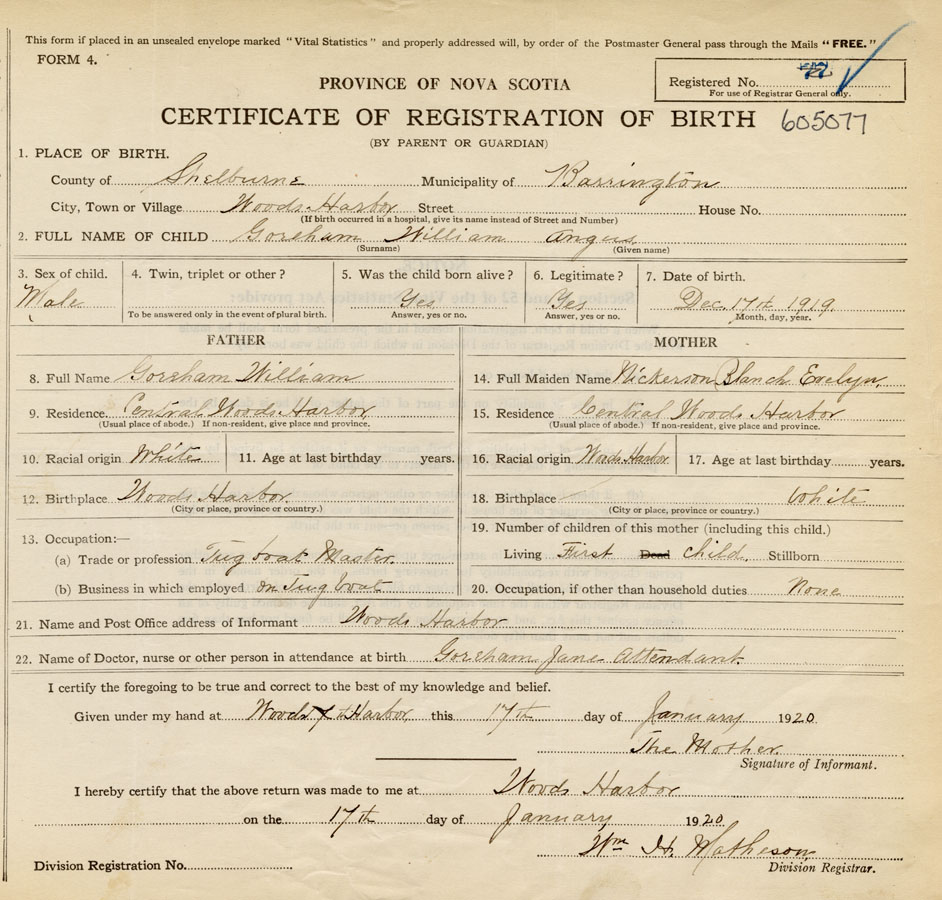 This form if placed in an unsealed envelope marked "Vital Statistics" and properly addressed will, by order of the Postmaster General pass through the Mails "FREE."
FORM 4.
PROVINCE OF NOVA SCOTIA
Registered No.
For use of Registrar General only.
CERTIFICATE OF REGISTRATION OF BIRTH 605077
(BY PARENT OR GUARDIAN)
1. PLACE OF BIRTH.
County of Shelburne Municipality of Barrington
City, Town or Village Woods Harbor Street House No.
(If birth occurred in a hospital, give its name instead of Street and Number)
2. FULL NAME OF CHILD Goreham William Angus
(Surname) (Given name)
3. Sex of child. 4. Twin, triplet or other? 5. Was the child born alive? 6. Legitimate? 7. Date of birth.
Male Yes Yes Dec. 17th 1919.
To be answered only in the event of plural birth. Answer, yes or no. Answer, yes or no. Month, day, year.
FATHER MOTHER
8. Full Name Goreham William 14. Full Maiden Name Nickerson Blanch Evelyn.
9. Residence. Central Woods Harbor 15. Residence Central Woods Harbor
(Usual place of abode.) If non-resident, give place and province. (Usual place of abode.) If non-resident, give place and province.
10. Racial origin White 11. Age at last birthday years. 16. Racial origin Woods Harbor 17. Age at last birthday years.
12. Birthplace Woods Harbor 18. Birthplace White
(City or place, province or country.) (City or place, province or country.)
13. Occupation:— 19. Number of children of this mother (including this child.)
(a) Trade or profession Tug boat Master. Living First Dead Child. Stillborn
(b) Business in which employed on Tug boat 20. Occupation, if other than household duties None
21. Name and Post Office address of Informant Woods Harbor
22. Name of Doctor, nurse or other person in attendance at birth Goreham Jane Attendant.
I certify the foregoing to be true and correct to the best of my knowledge and belief.
Given under my hand at Woods Harbor this 17th day of January 1920.
The Mother
Signature of Informant.
I hereby certify that the above return was made to me at Woods Harbor
on the 17th day of January 1920
Wm H. Matheson
Division Registration No. Division Registrar.